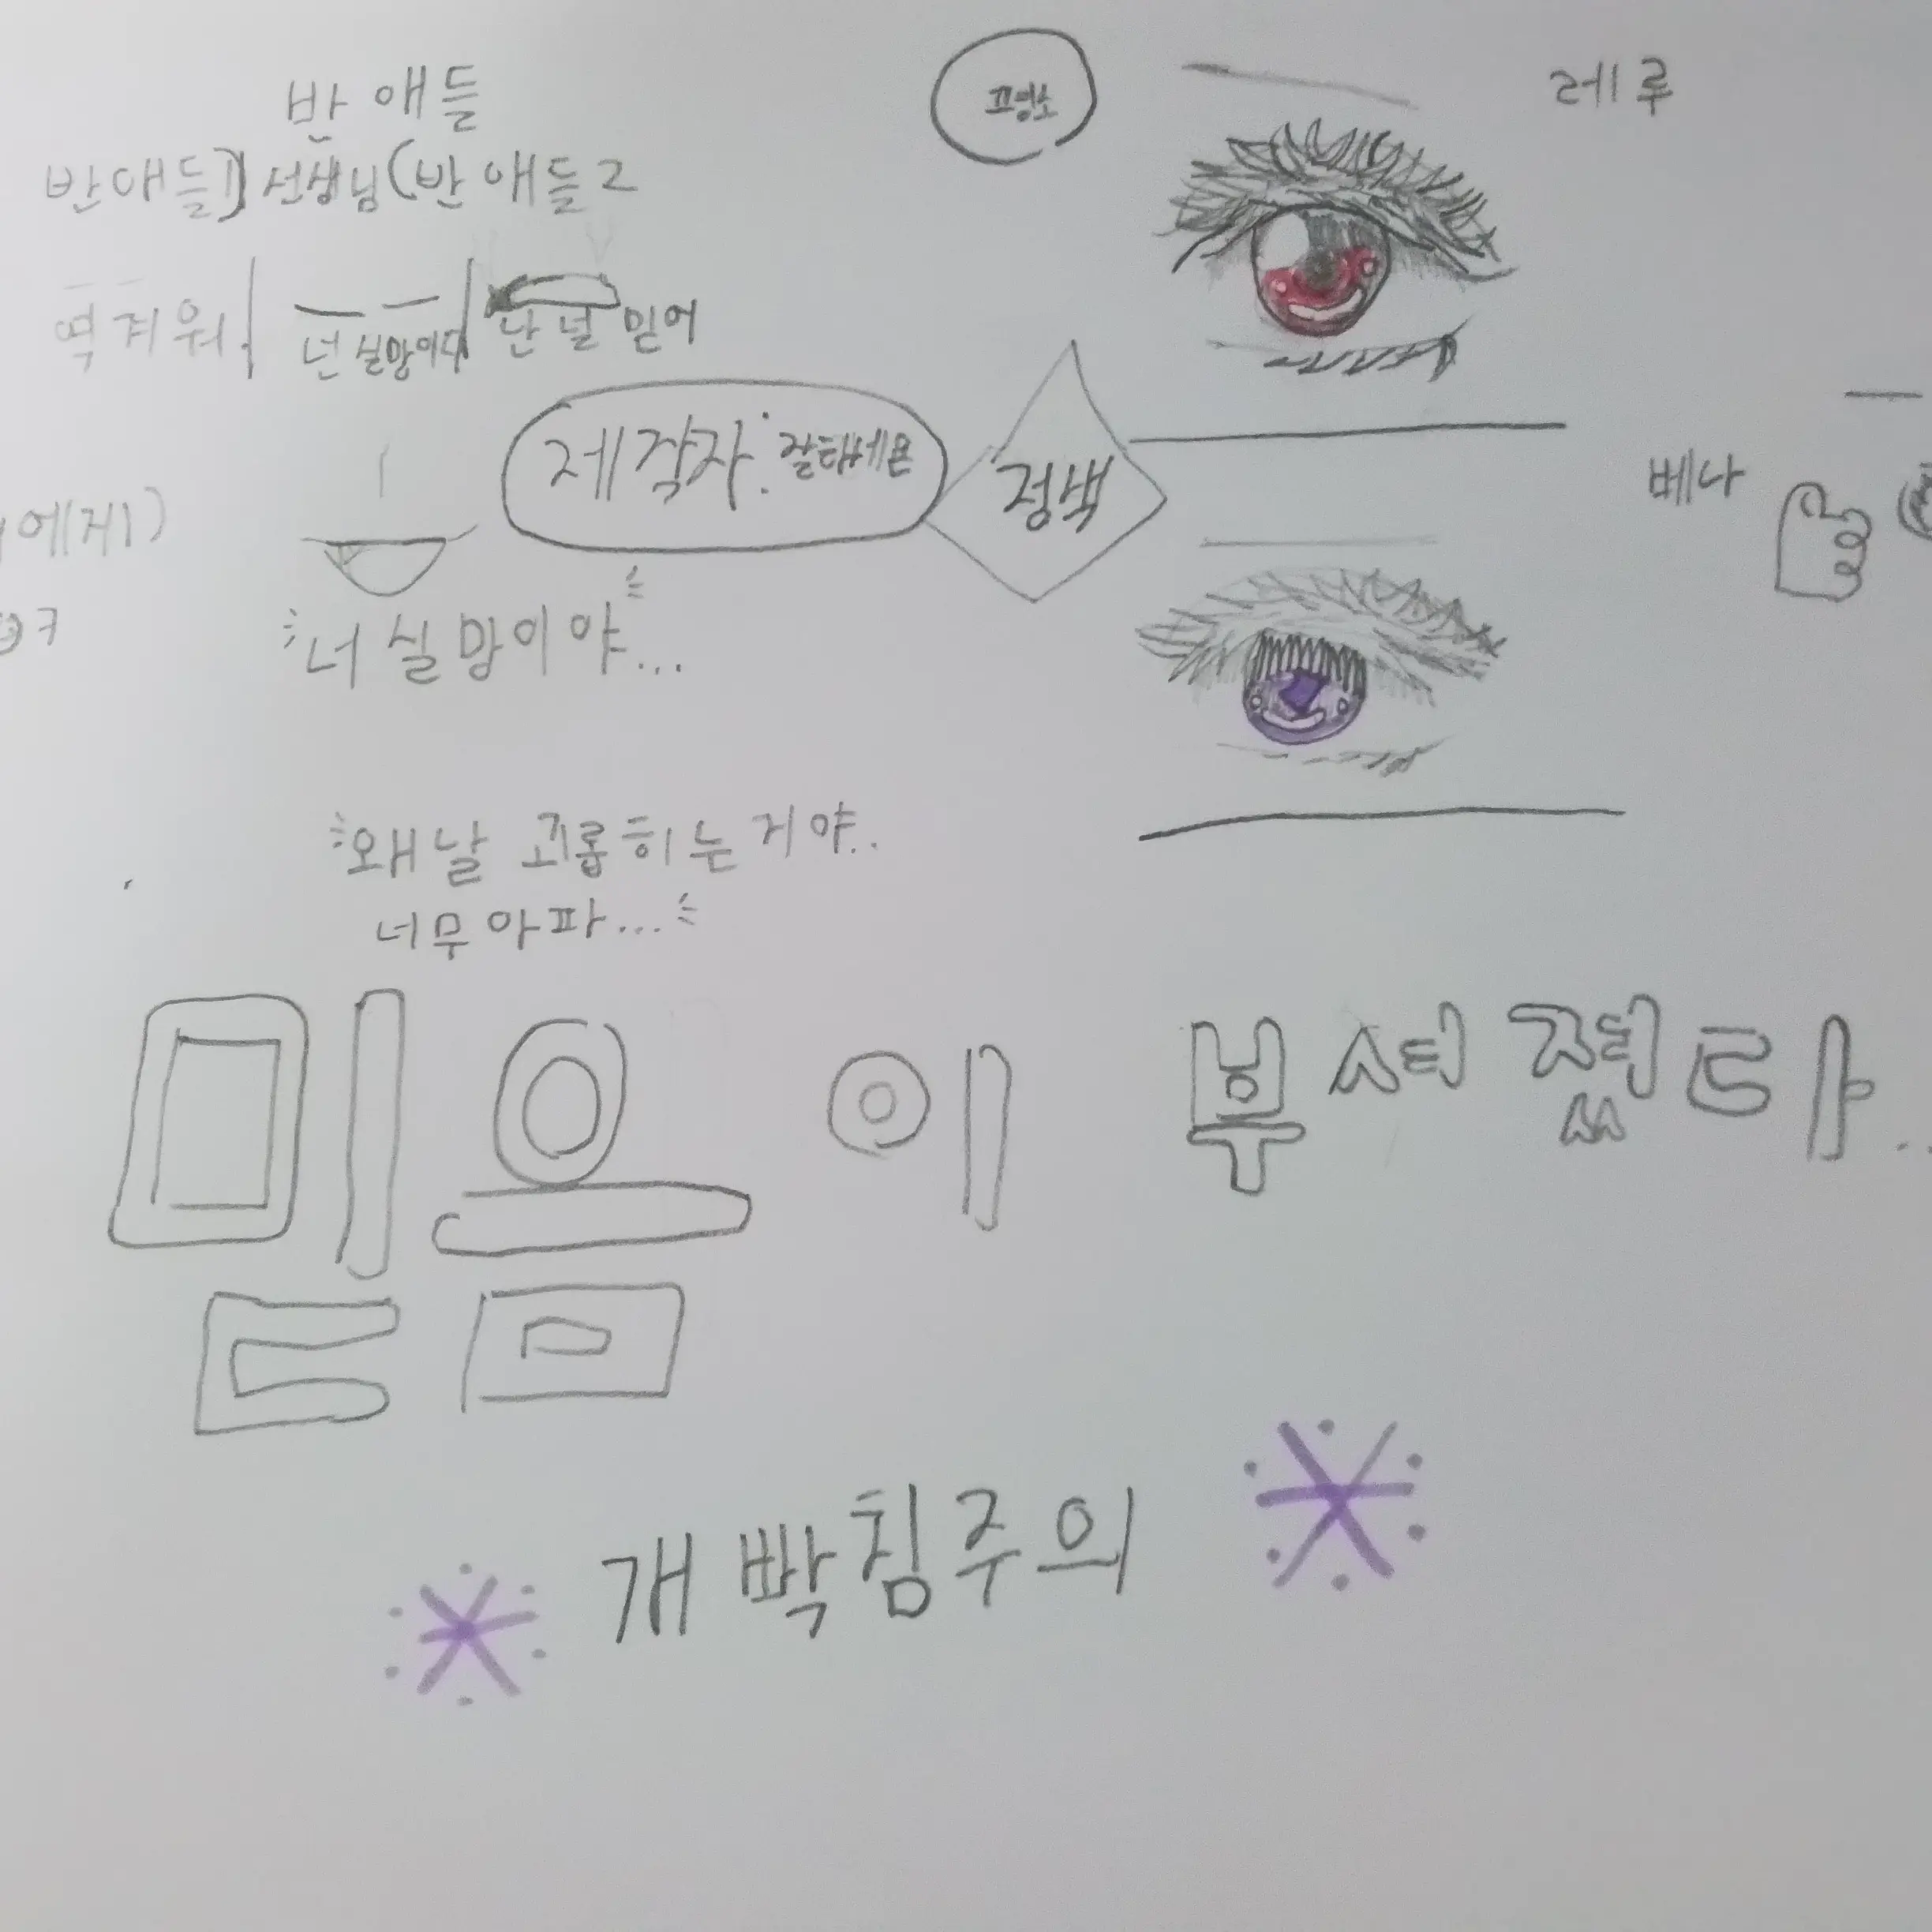 반 애들
반애들1) 선생님 (반 애들2
역겨워. 넌 실망이다 난 널 믿어
평소
레루
제작자:
정색
에게1)
베나
너 실망이야...
왜 날 괴롭히는거야..
너무 아파...
믿음이 부서졌다...
개빡침주의